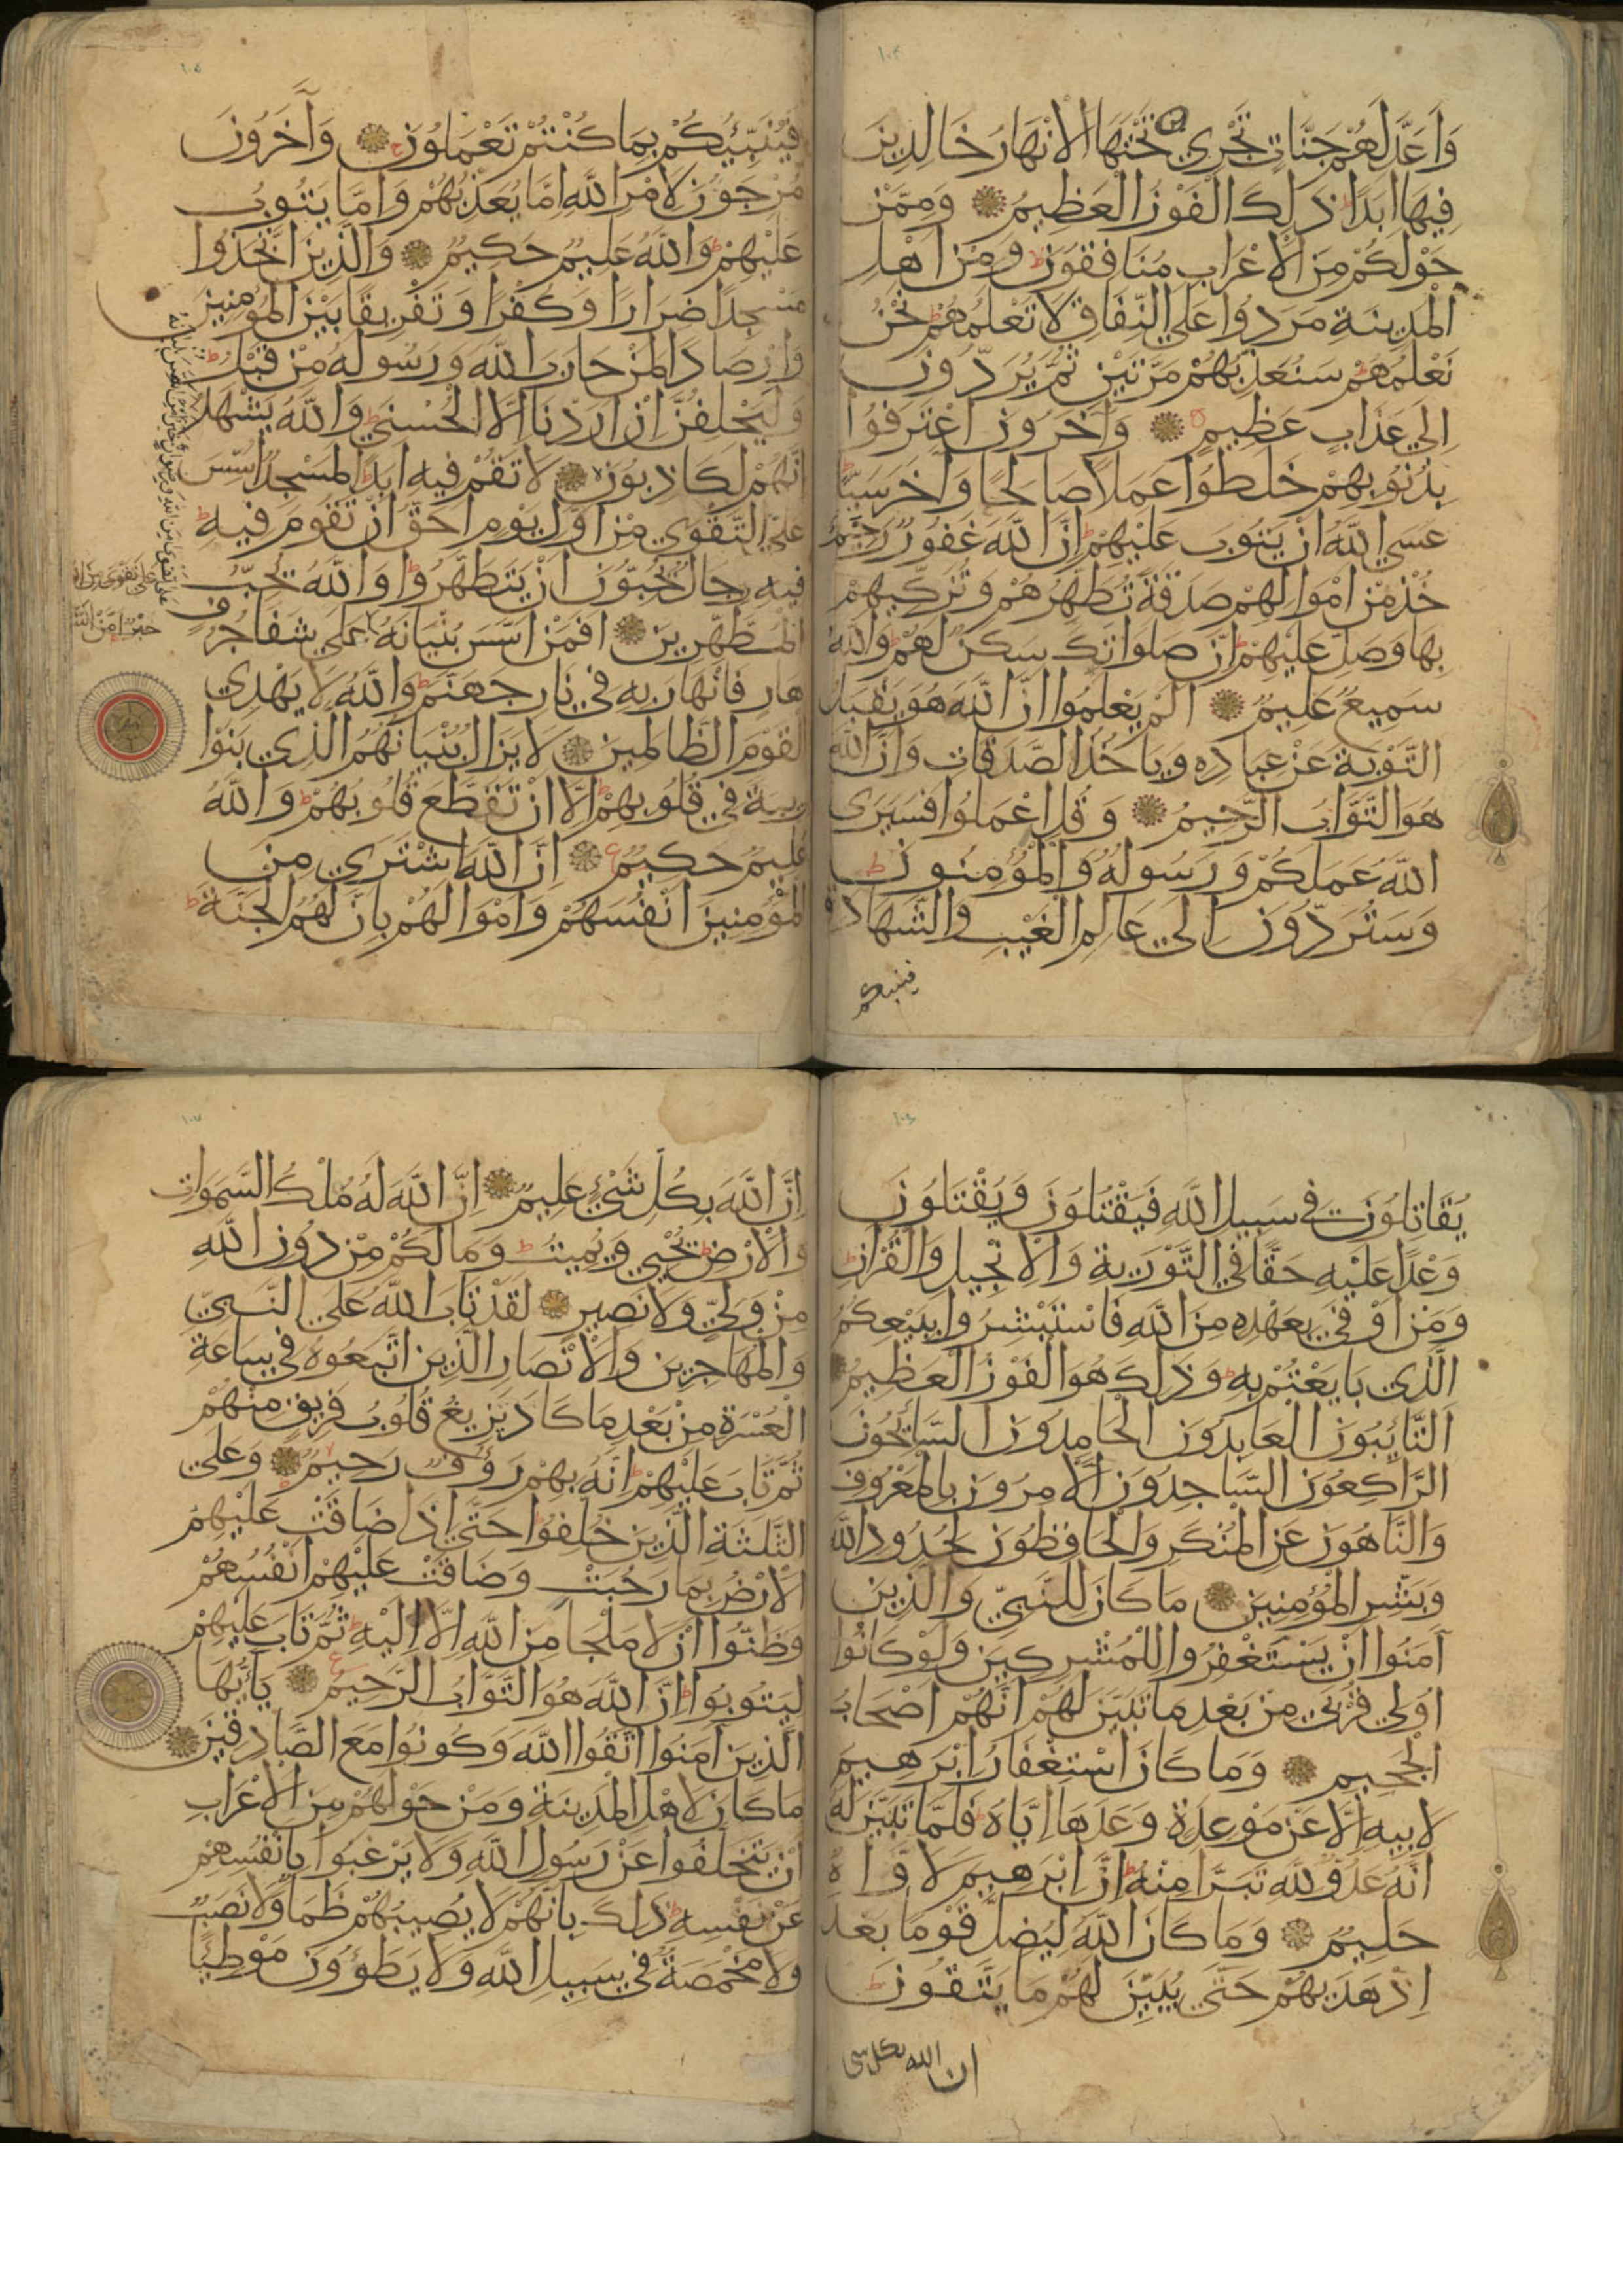 ١٠٤
واعد لهم جنات تجري من تحتها الانهار خالدين
فيها ابدا ذلك الفوز العظيم وممن
حولكم من الاعراب منافقون ومن اهل
المدينة مردوا علي النفاق لا تعلمهم نحن
نعلمهم سنعذبهم مرتين ثم يردون
الي عذاب عظيم وآخرون اعترفوا
بذنوبهم خلطوا عملا صالحا وآخر سيئا
عسي الله ان يتوب عليهم ان الله غفور رحيم
خذ من اموالهم صدقة تطهرهم وتزكيهم
بها وصل عليهم ان صلواتك سكن لهم والله
سميع عليم الم يعلموا ان الله هو يقبل
التوبة عن عباده وياخذ الصدقات وان الله
هو التواب الرحيم وقل اعملوا فسيرى
الله عملكم ورسوله والمؤمنون
وستردون الي عالم الغيب والشهادة
فينبئكم
١٠٥
فينبئكم بما كنتم تعملون وآخرون
مرجون لامر الله اما يعذبهم واما يتوب
عليهم والله عليم حكيم والذين اتخذوا
مسجدا ضرارا وكفرا وتفريقا بين المؤمنين
وارصادا لمن حارب الله ورسوله من قبل
وليحلفن ان اردنا الا الحسني والله يشهد
انهم لكاذبون لا تقم فيه ابدا لمسجد اسس
علي التقوي من اول يوم احق ان تقوم فيه
فيه رجال يحبون ان يتطهروا والله يحب
المطهرين افمن اسس بنيانه علي شفا جرف
هار فانهار به في نار جهنم والله لا يهدي
القوم الظالمين لا يزال بنيانهم الذي بنوا
ريبة في قلوبهم الا ان تقطع قلوبهم والله
عليم حكيم ان الله اشتري من
المؤمنين انفسهم واموالهم بان لهم الجنة
يقاتلون في سبيل الله فيقتلون ويقتلون
وعدا عليه حقا في التورية والانجيل والقرآن
ومن اوفي بعهده من الله فاستبشروا ببيعكم
الذي بايعتم به وذلك هو الفوز العظيم
التائبون العابدون الحامدون السائحون
الراكعون الساجدون الآمرون بالمعروف
والناهون عن المنكر والحافظون لحدود الله
وبشر المؤمنين ما كان للنبي والذين
آمنوا ان يستغفروا للمشركين ولو كانوا
اولي قربي من بعد ما تبين لهم انهم اصحاب
الجحيم وما كان استغفار ابرهيم
لابيه الا عن موعدة وعدها اياه فلما تبين له
انه عدو لله تبرا منه ان ابرهيم لاواه
حليم وما كان الله ليضل قوما بعد
اذ هديهم حتي يبين لهم ما يتقون
ان الله بكل شي
ان الله بكل شيء عليم ان الله له ملك السموات
والارض يحيي ويميت وما لكم من دون الله
من ولي ولا نصير لقد تاب الله علي النبي
والمهاجرين والانصار الذين اتبعوه في ساعة
العسرة من بعد ما كاد يزيغ قلوب فريق منهم
ثم تاب عليهم انه بهم رؤف رحيم وعلي
الثلثة الذين خلفوا حتي اذا ضاقت عليهم
الارض بما رحبت وضاقت عليهم انفسهم
وظنوا ان لا ملجا من الله الا اليه ثم تاب عليهم
ليتوبوا ان الله هو التواب الرحيم يا ايها
الذين آمنوا اتقوا الله وكونوا مع الصادقين
ما كان لاهل المدينة ومن حولهم من الاعراب
ان يتخلفوا عن رسول الله ولا يرغبوا بانفسهم
عن نفسه ذلك بانهم لا يصيبهم ظما ولا نصب
ولا مخمصة في سبيل الله ولا يطؤون موطئا